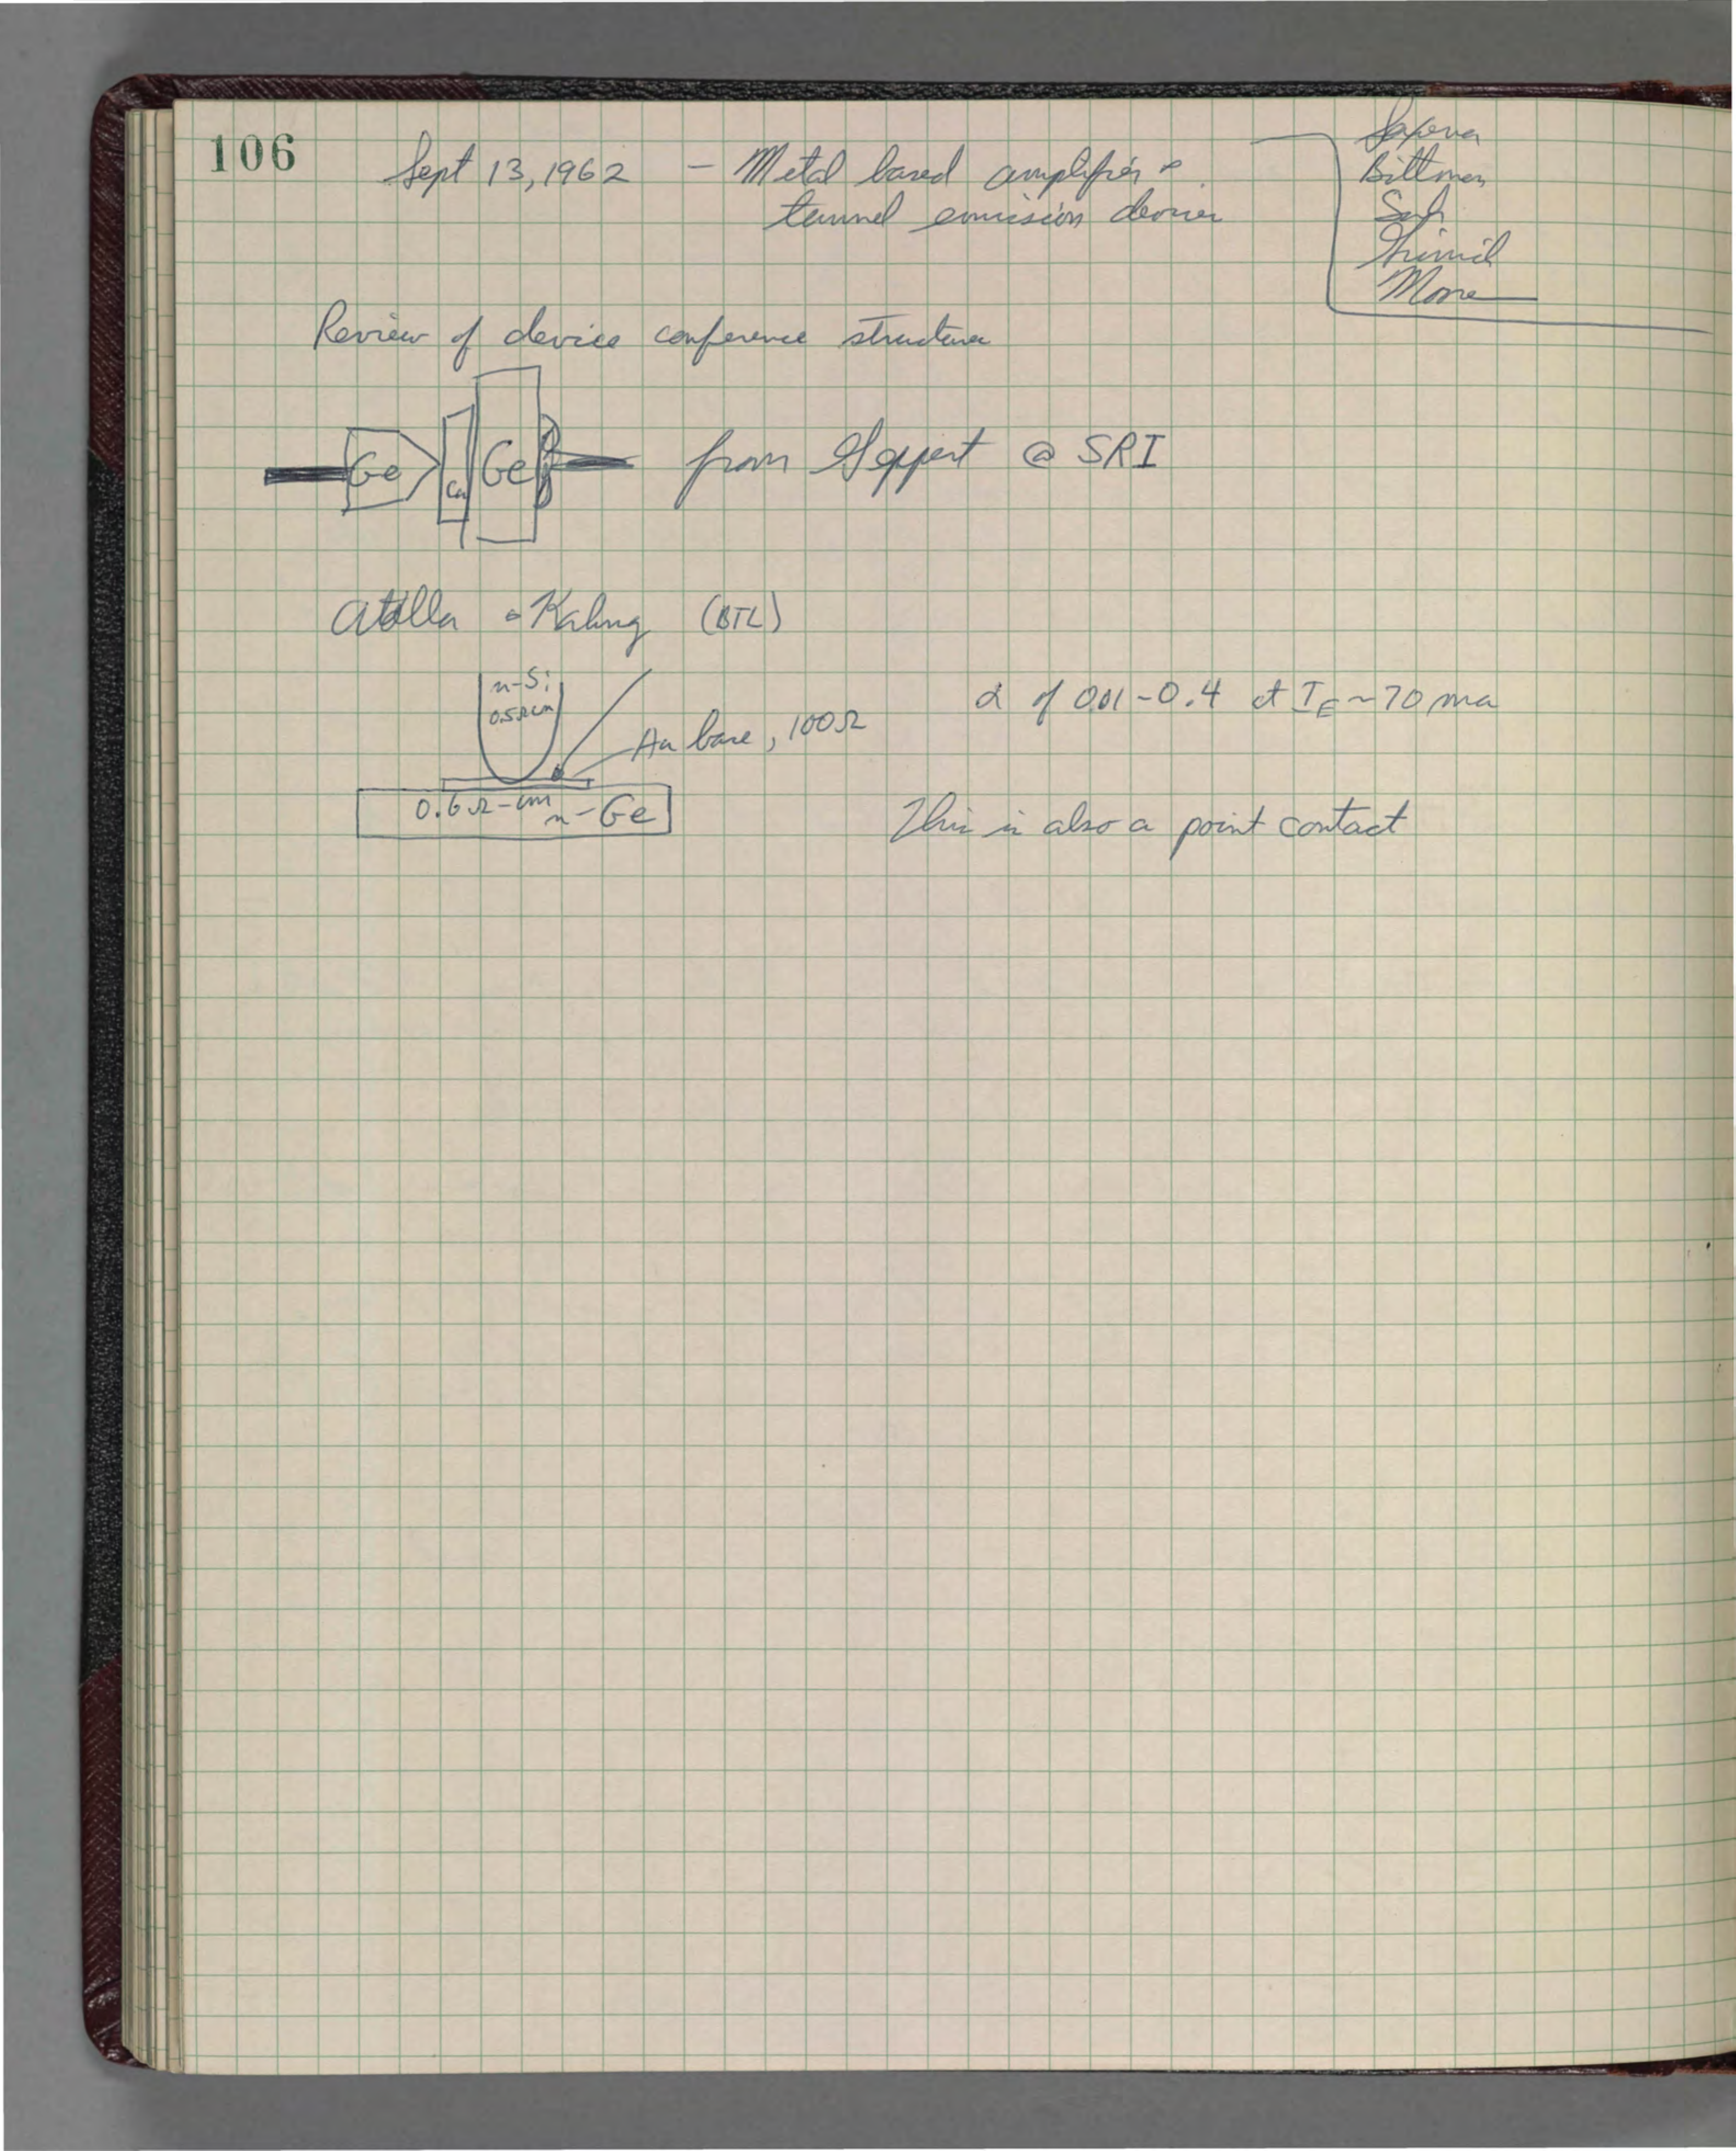 106
Sept 13, 1962 - Metal based amplifier &
tunnel emission devices
Saxena
Bittman
Sah
Grinich
Moore
Review of device conference structures
Ge
Ge
from Geppert @ SRI
Atalla & Kahng (BTL)
n-Si
0.5Ωcm
Au base, 100Ω
0.6Ω-cm n-Ge
α of 0.01-0.4 at I_E ~ 70 ma
This is also a point contact